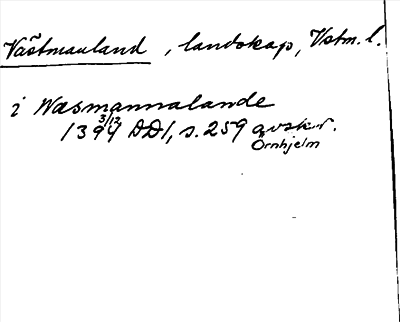 Västmanland, landskap, Vstm. l.
i Wæsmannalande
3/12
1394 DD1, s. 259 avskr.
Örnhjelm